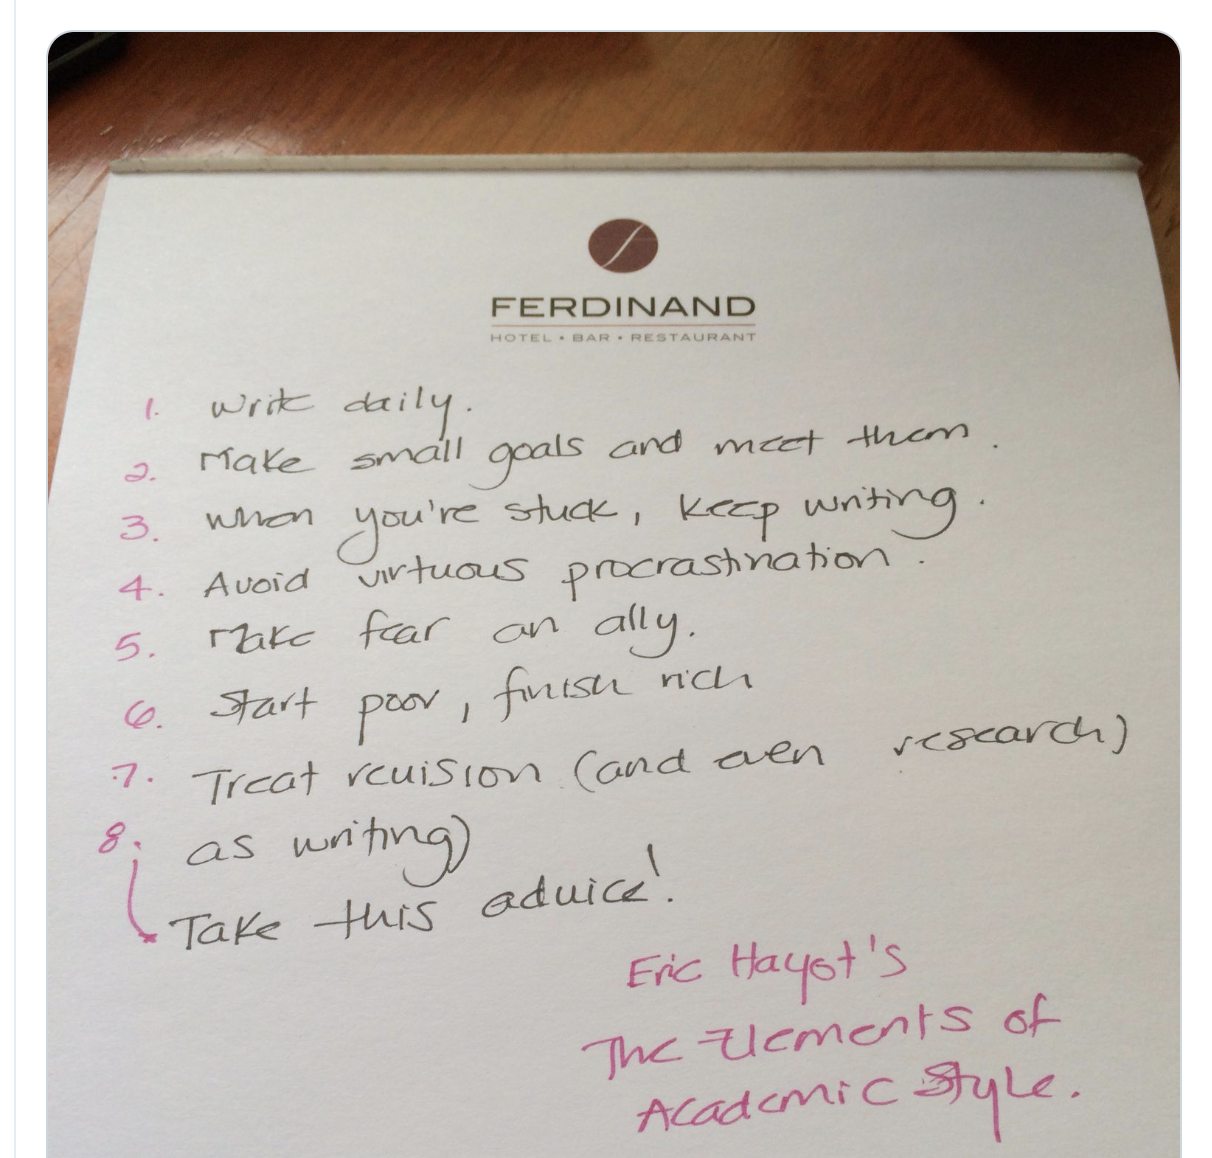 FERDINAND
HOTEL • BAR • RESTAURANT
1. Write daily.
2. Make small goals and meet them.
3. When you're stuck, keep writing.
4. Avoid virtuous procrastination.
5. Make fear an ally.
6. Start poor, finish rich
7. Treat revision (and even research)
8. as writing)
Take this advice!
Eric Hayot's
The Elements of
Academic Style.